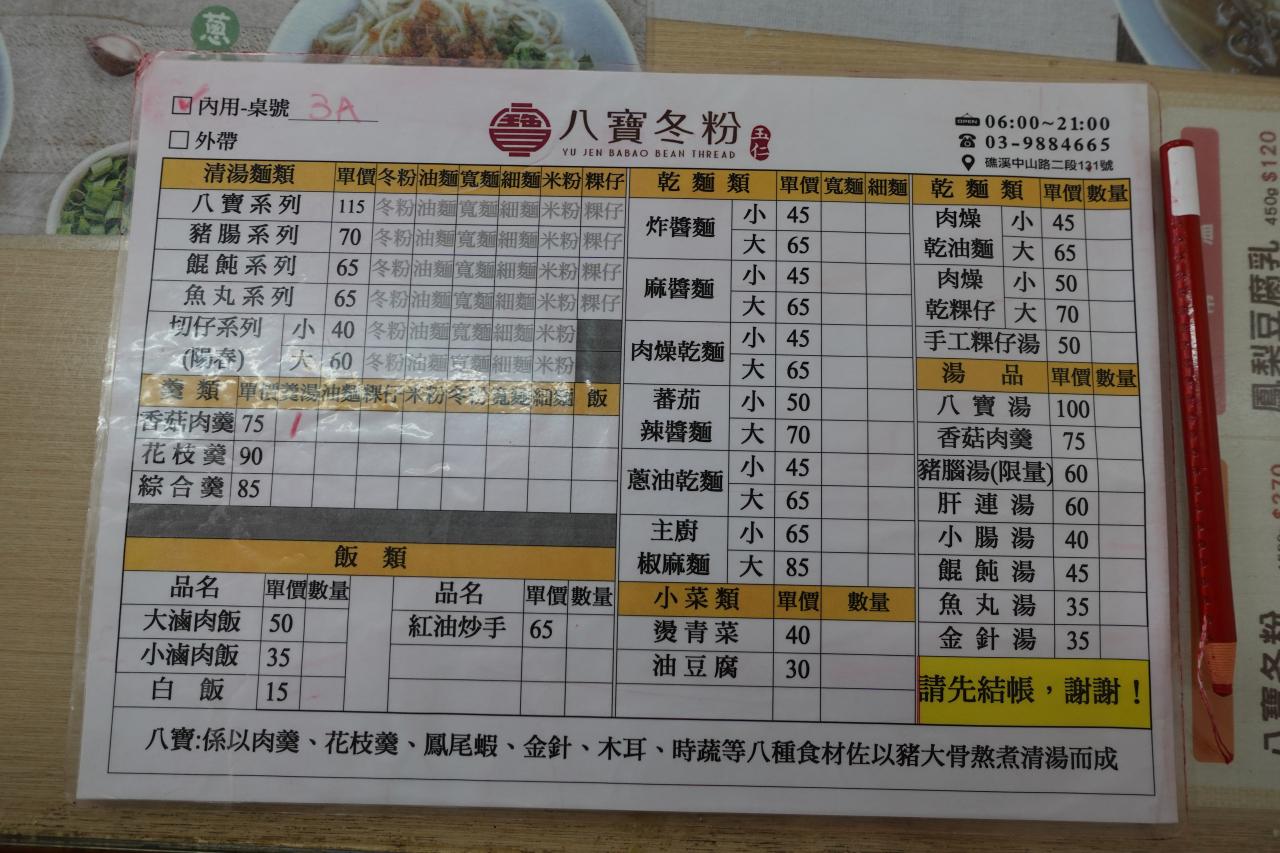 蔥
內用-桌號 3A
外帶
八寶冬粉
玉仁
YU JEN BABAO BEAN THREAD
OPEN 06:00~21:00
03-9884665
礁溪中山路二段131號
清湯麵類 單價 冬粉 油麵 寬麵 細麵 米粉 粿仔
八寶系列 115 冬粉 油麵 寬麵 細麵 米粉 粿仔
豬腸系列 70 冬粉 油麵 寬麵 細麵 米粉 粿仔
餛飩系列 65 冬粉 油麵 寬麵 細麵 米粉 粿仔
魚丸系列 65 冬粉 油麵 寬麵 細麵 米粉 粿仔
切仔系列 小 40 冬粉 油麵 寬麵 細麵 米粉
(陽春) 大 60 冬粉 油麵 寬麵 細麵 米粉
羹類 單價 羹湯 油麵 粿仔 米粉 冬粉 寬麵 細麵 飯
香菇肉羹 75 /
花枝羹 90
綜合羹 85
飯類
品名 單價 數量 品名 單價 數量
大滷肉飯 50 紅油炒手 65
小滷肉飯 35
白飯 15
乾麵類 單價 寬麵 細麵
炸醬麵 小 45
大 65
麻醬麵 小 45
大 65
肉燥乾麵 小 45
大 65
蕃茄 小 50
辣醬麵 大 70
蔥油乾麵 小 45
大 65
主廚 小 65
椒麻麵 大 85
小菜類 單價 數量
燙青菜 40
油豆腐 30
乾麵類 單價 數量
肉燥 小 45
乾油麵 大 65
肉燥 小 50
乾粿仔 大 70
手工粿仔湯 50
湯品 單價 數量
八寶湯 100
香菇肉羹 75
豬腦湯(限量) 60
肝連湯 60
小腸湯 40
餛飩湯 45
魚丸湯 35
金針湯 35
請先結帳，謝謝！
八寶:係以肉羹、花枝羹、鳳尾蝦、金針、木耳、時蔬等八種食材佐以豬大骨熬煮清湯而成
鳳梨豆腐乳 450g $120
八寶冬粉